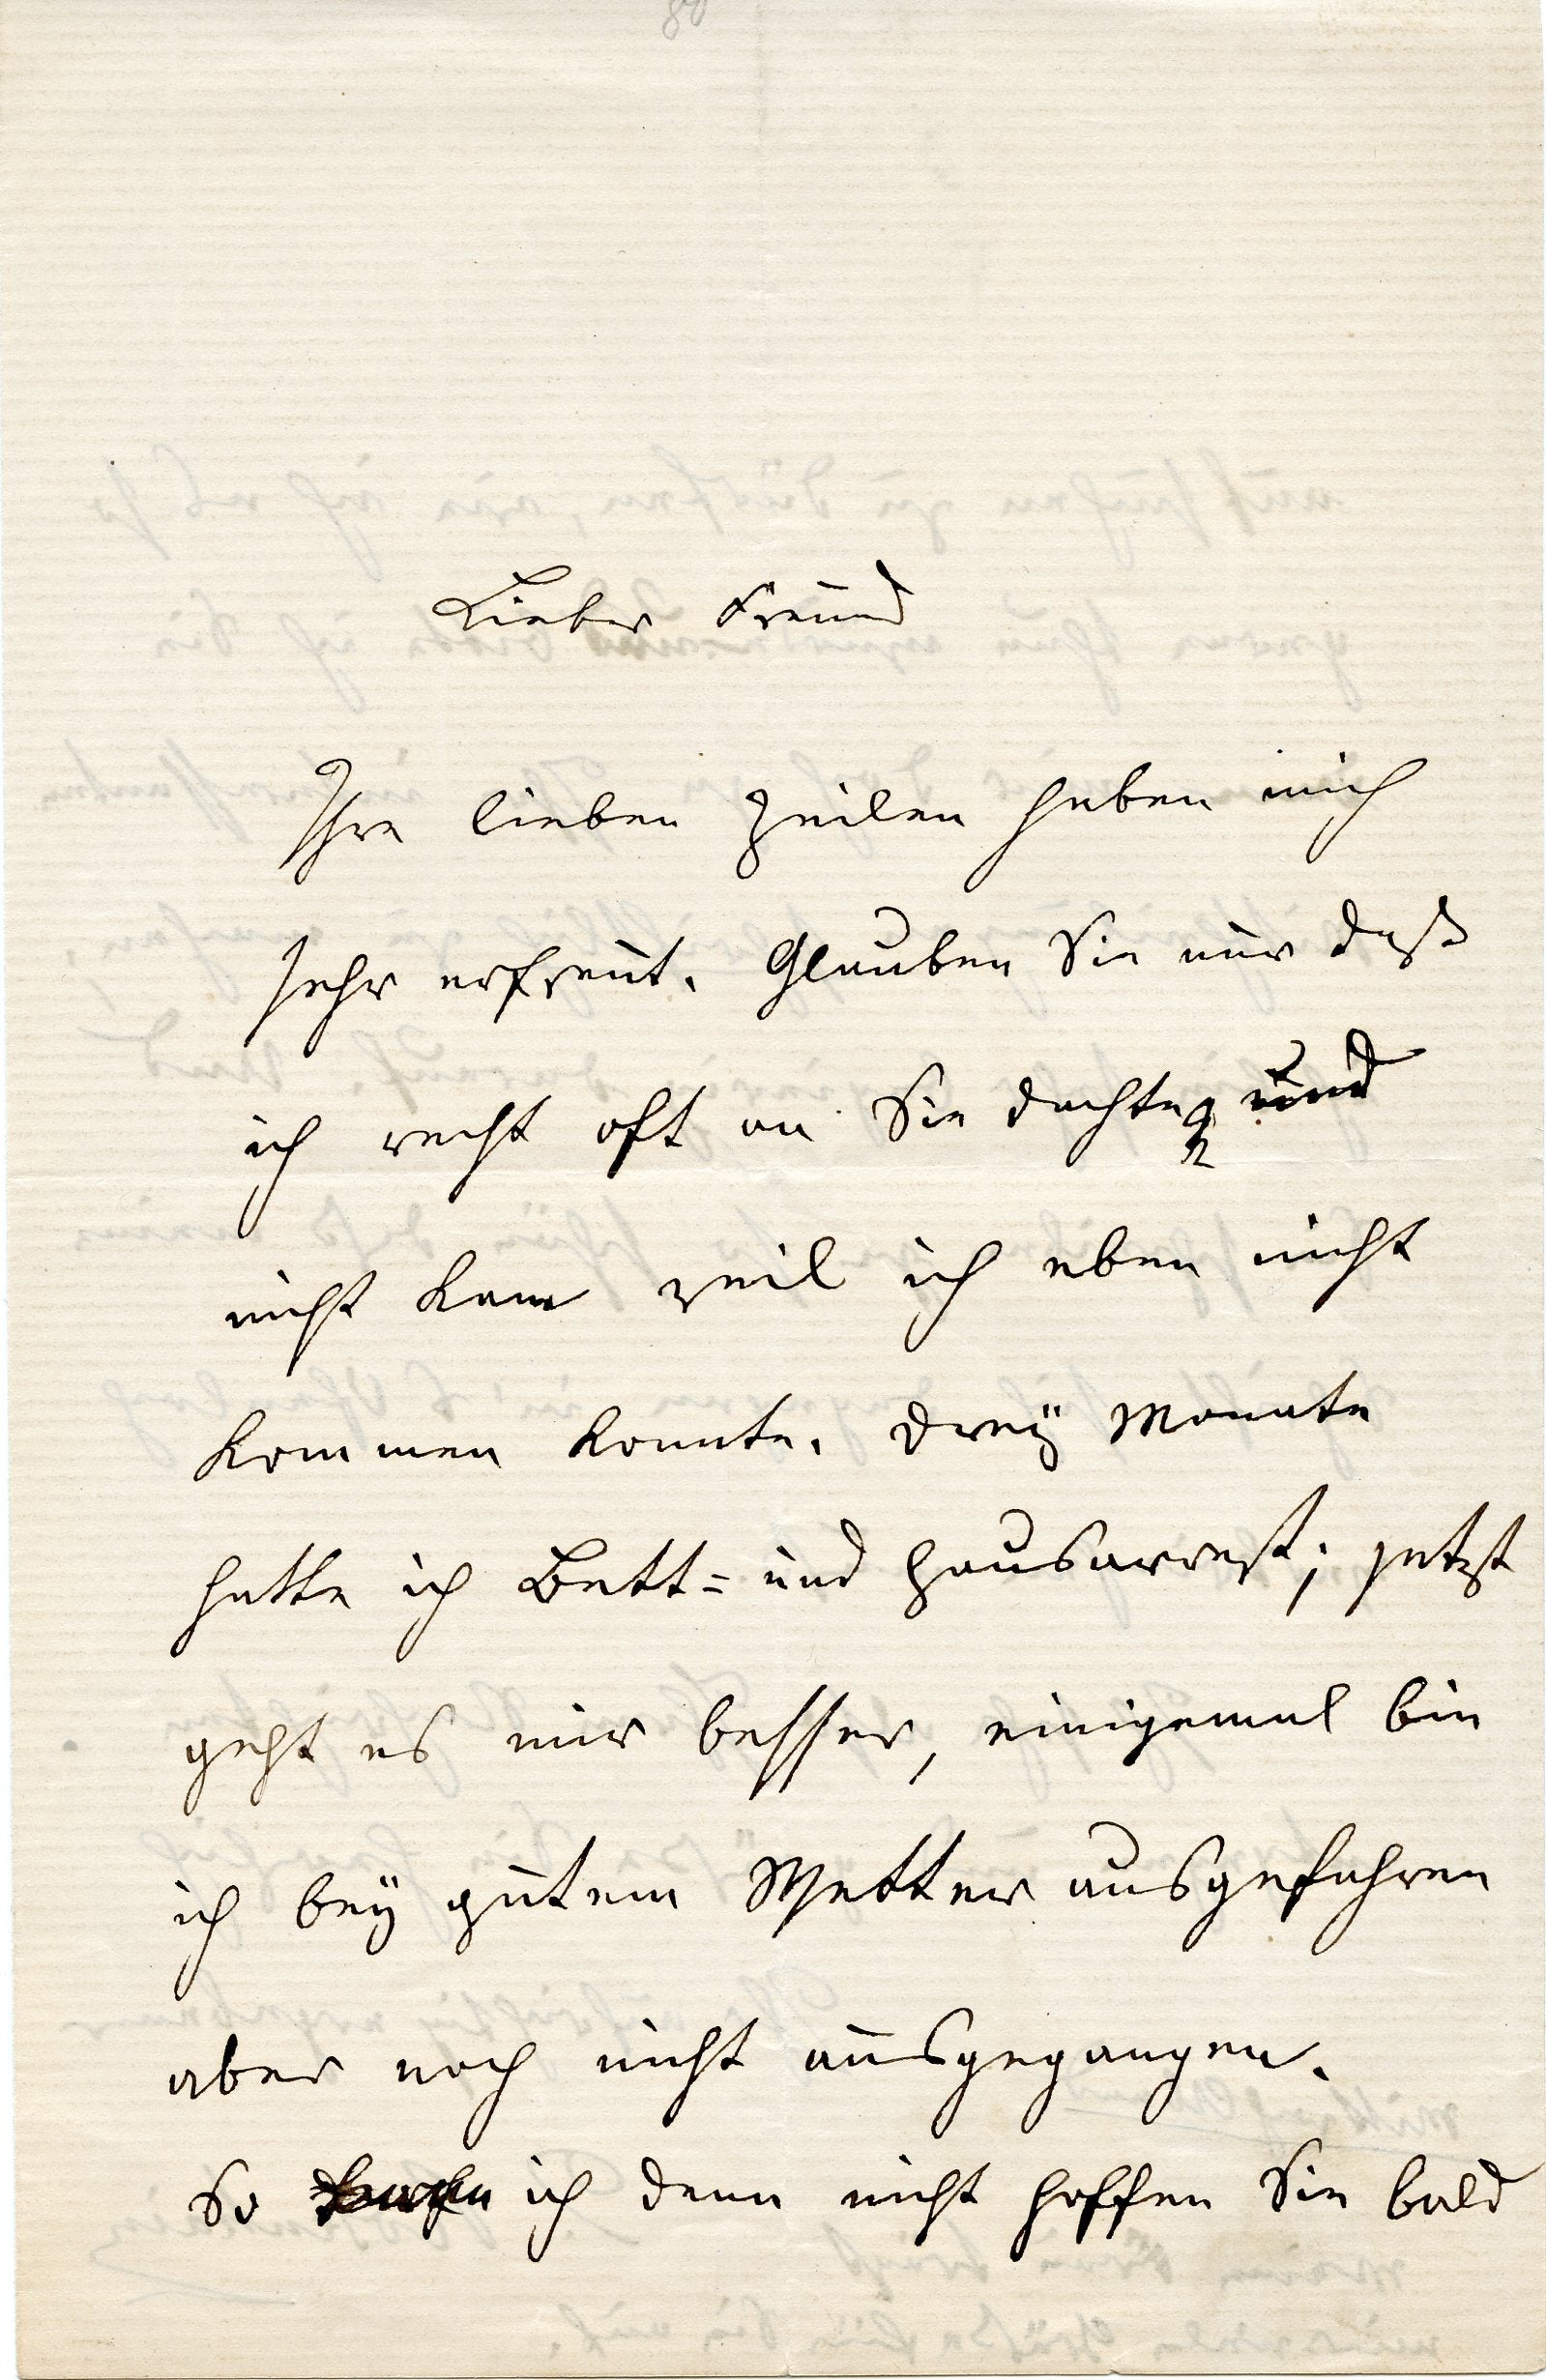 80
Lieber Freund
Ihre lieben Zeilen haben mich
sehr erfreut. Glauben Sie nur daß
ich recht oft an Sie dachte, und
nicht kam weil ich eben nicht
kommen konnte. Drey Monate
hatte ich Bett= und Hausarrest; jetzt
geht es mir besser, einigemal bin
ich bey gutem Wetter ausgefahren
aber noch nicht ausgegangen.
So ich denn nicht hoffen Sie bald